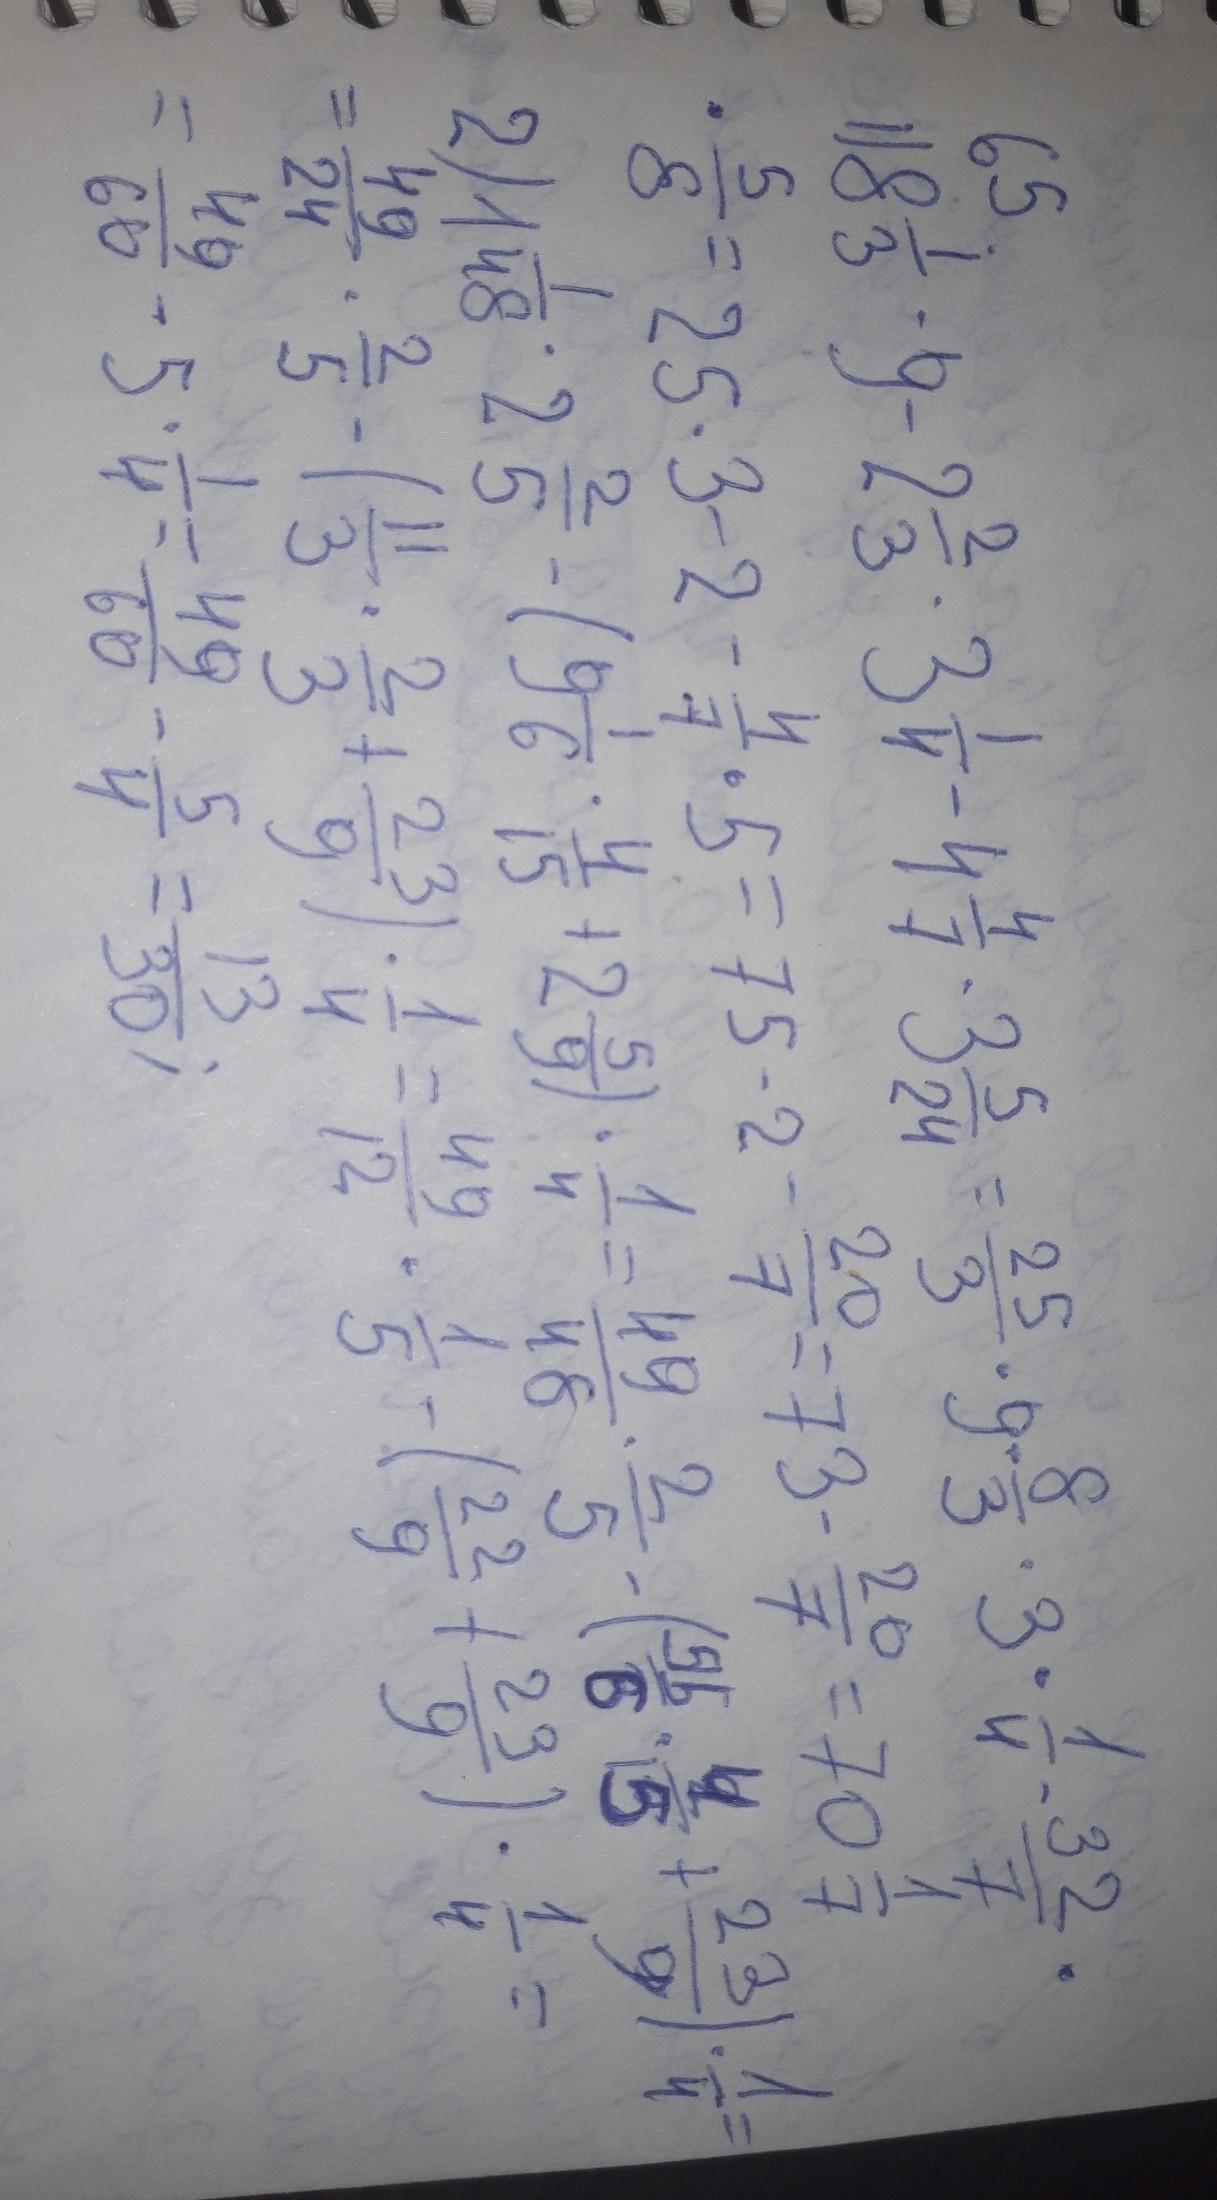 65.
1) 8 1/3 · 9 - 2 2/3 · 3 1/4 - 4 4/7 · 3 5/24 = 25/3 · 9 · 8/3 · 3 · 1/4 - 32/7 ·
· 5/8 = 25 · 3 - 2 - 4/7 · 5 = 75 - 2 - 20/7 = 73 - 20/7 = 70 1/7
2) 1 1/48 · 2 2/5 - (9 1/6 · 4/15 + 2 5/9) · 1/4 = 49/48 · 2/5 - (55/6 · 4/15 + 23/9) · 1/4 =
= 49/24 · 2/5 - (11/3 · 2/3 + 23/9) · 1/4 = 49/12 · 1/5 - (22/9 + 23/9) · 1/4 =
= 49/60 - 5 · 1/4 = 49/60 - 5/4 = 13/30;